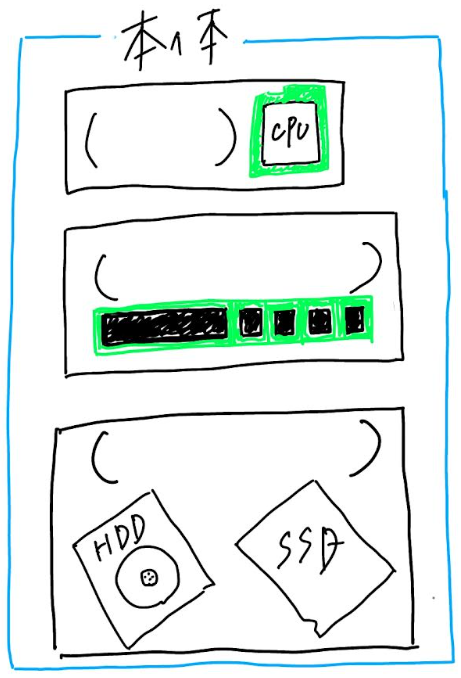 本イ本
(        )
CPU
(        )
(        )
HDD
SSD